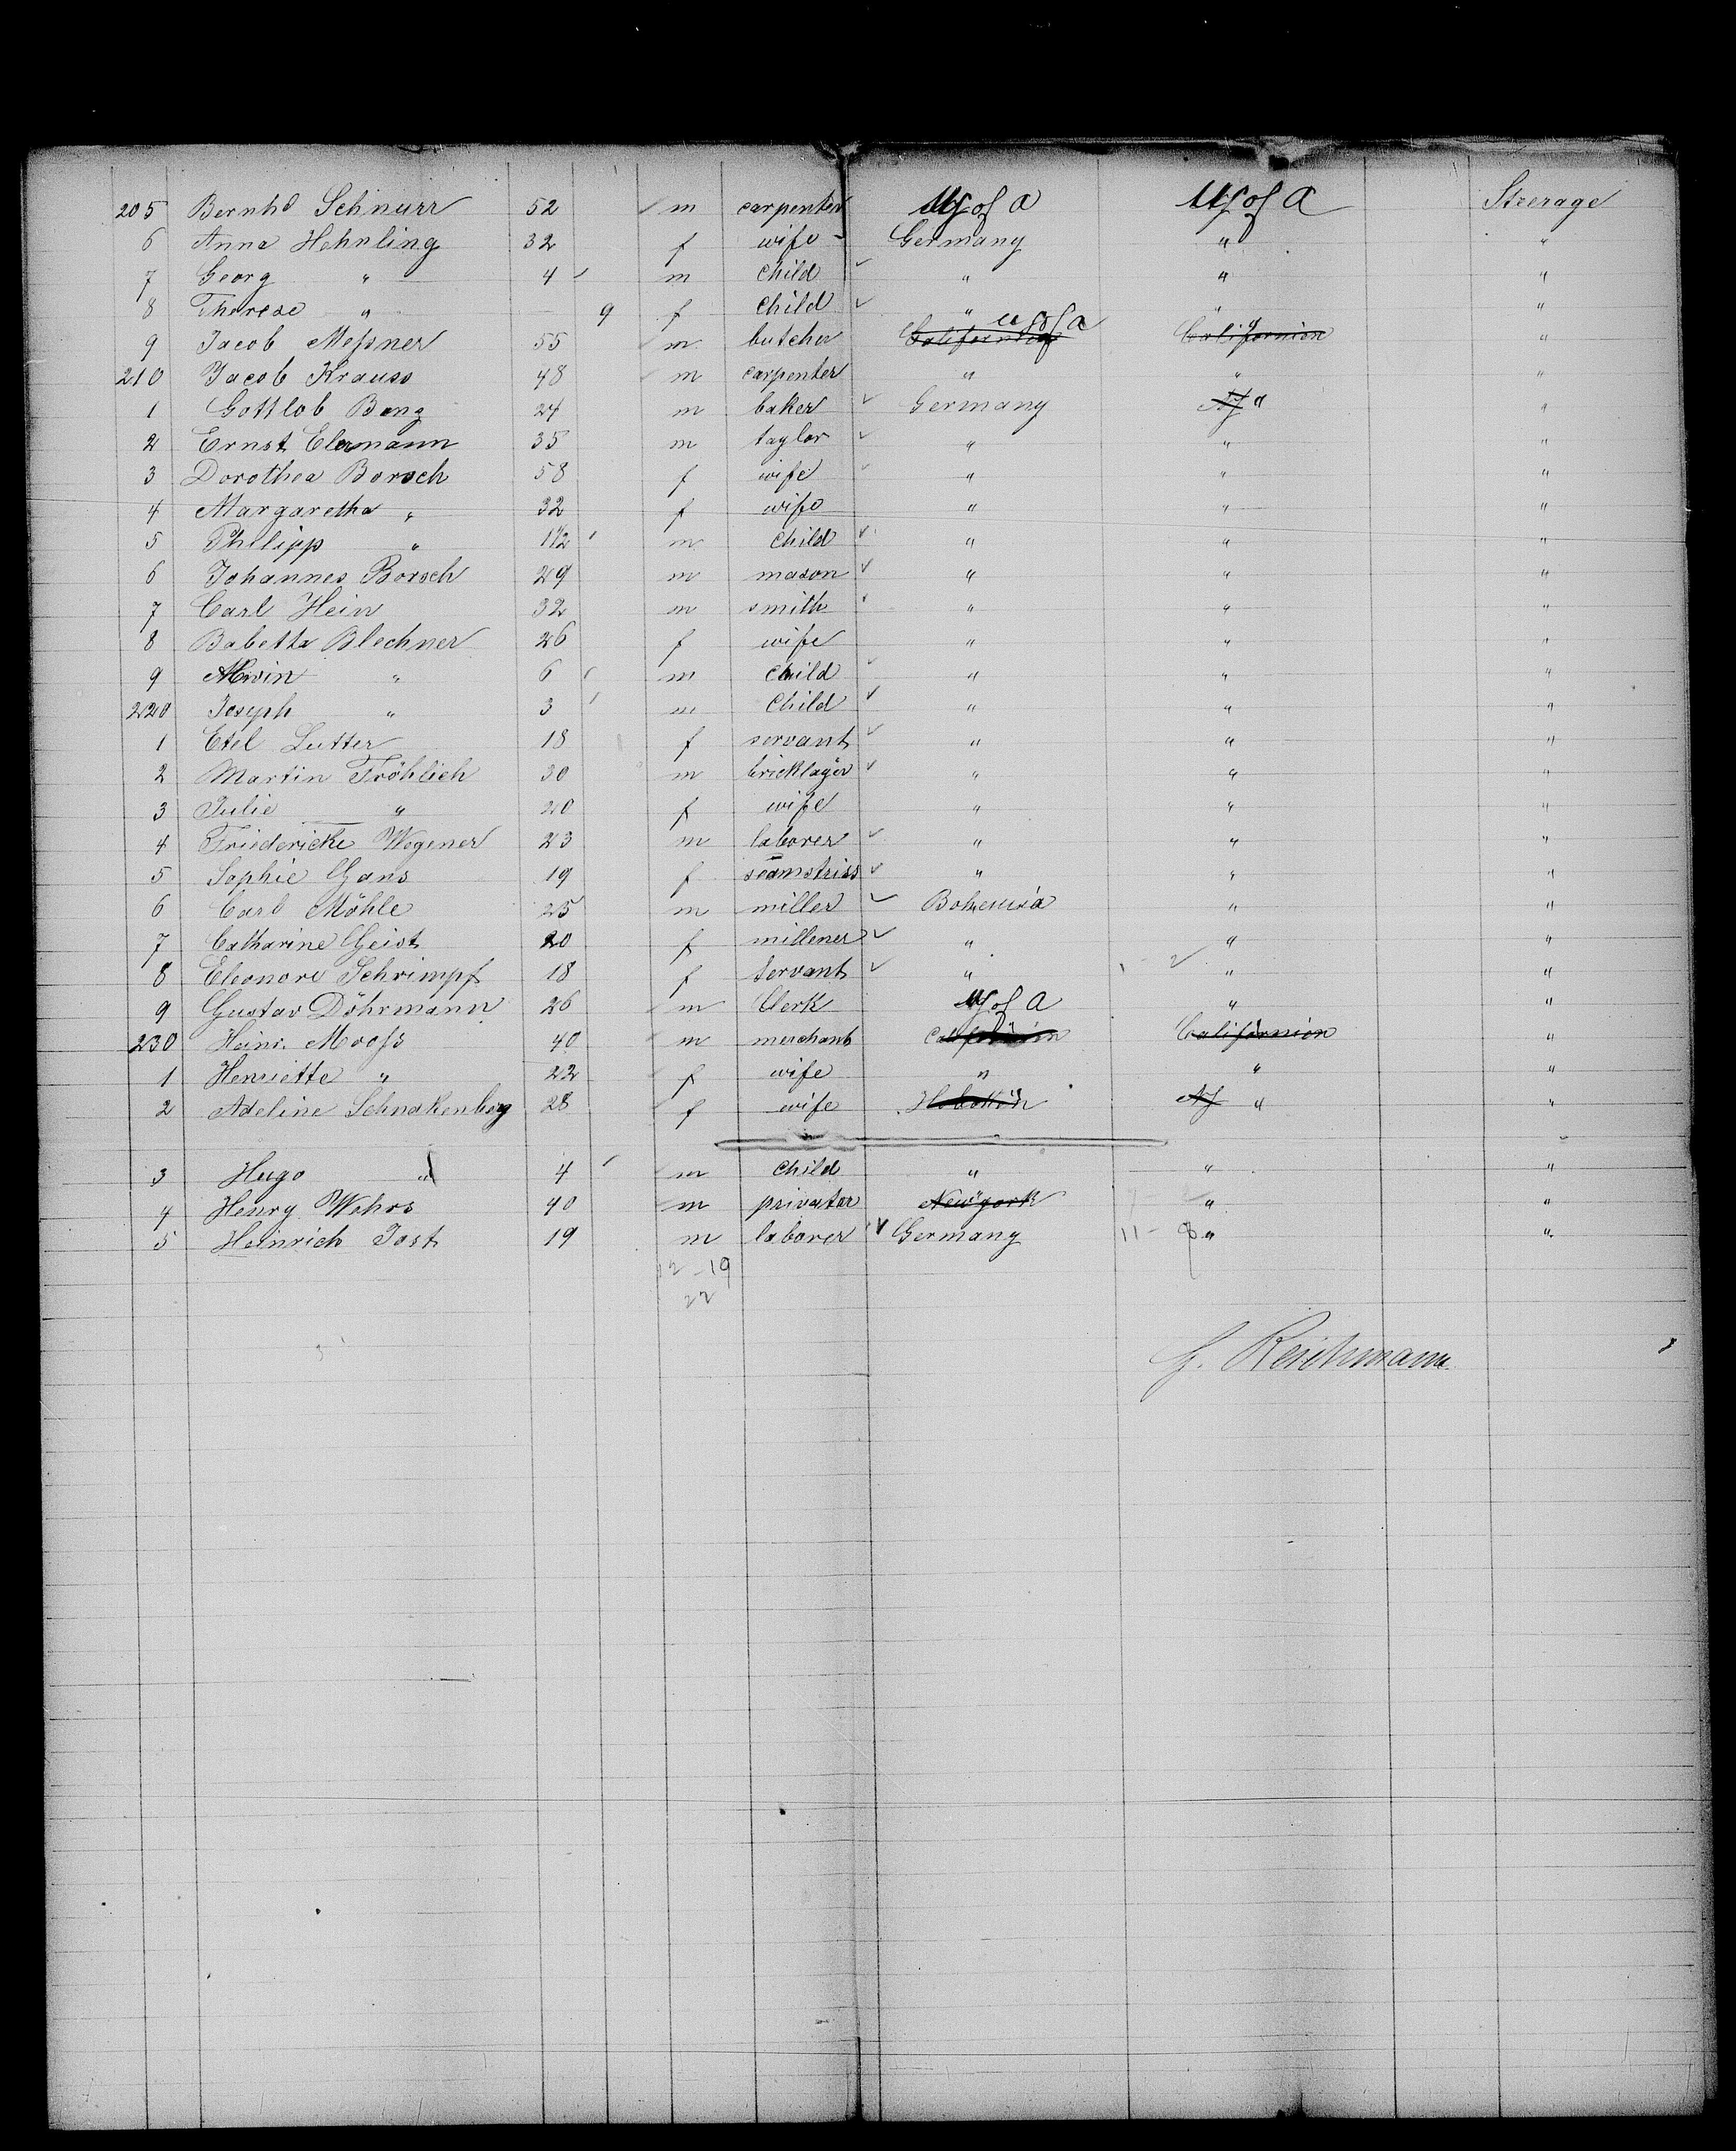 205 Bernhd Schnurr 52 m carpenter US of A US of A Steerage
6 Anna Hehnling 32 f wife Germany " "
7 Georg " 4 m child " " "
8 Therese " 9 f child " " "
9 Jacob Meßner 55 m butcher California US of A Californien "
210 Jacob Krauss 48 m carpenter " " "
1 Gottlob Beng 24 m baker Germany " "
2 Ernst Elermann 35 m taylor " " "
3 Dorothea Borsch 58 f wife " " "
4 Margaretha " 32 f wife " " "
5 Philipp " 1 1/2 m child " " "
6 Johannes Borsch 29 m mason " " "
7 Carl Hein 32 m smith " " "
8 Babetta Blechner 26 f wife " " "
9 Alwin " 6 m child " " "
220 Joseph " 3 m Child " " "
1 Etel Lutter 18 f servant " " "
2 Martin Fröhlich 30 m bricklayer " " "
3 Julie " 20 f wife " " "
4 Friedericke Wegener 23 m laborer " " "
5 Sophie Gans 19 f seamstriss " " "
6 Carl Möhle 25 m miller Bohemia " "
7 Catharine Geist 20 f millener " " "
8 Eleonore Schrimpf 18 f servant " " "
9 Gustav Döhrmann 26 m Clerk US of A " "
230 Heinr. Mooss 40 m merchant Californien Californien "
1 Henriette " 22 f wife " " "
2 Adeline Schnakenberg 28 f wife Hoboken " "
3 Hugo " 4 m child " " "
4 Henry Wehrs 40 m privater New york " "
5 Heinrich Jost 19 m laborer Germany 11 - 8 " "
12 - 19
22
G. Reichmann